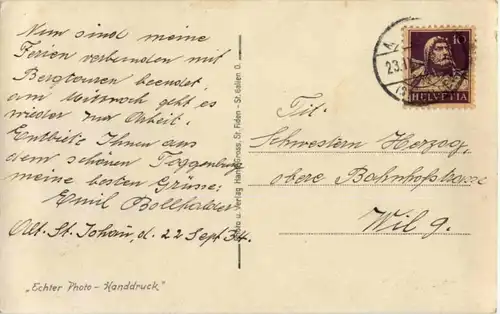 Nun sind meine
Ferien verbunden mit
Bergtouren beendet,
am Mittwoch geht es
wieder zur Arbeit.
Entbiete Ihnen aus
dem schönen Toggenburg
meine besten Grüsse:
Emil Bollhalder
Alt. St. Johann, d. 22 Sept 34.
„Echter Photo – Handdruck"
Foto u. Verlag Hans Gross, St. Fiden - St. Gallen O.
10
HELVETIA
23.
Tit.
Schwestern Herzog,
obere Bahnhofstrasse
Wil g.